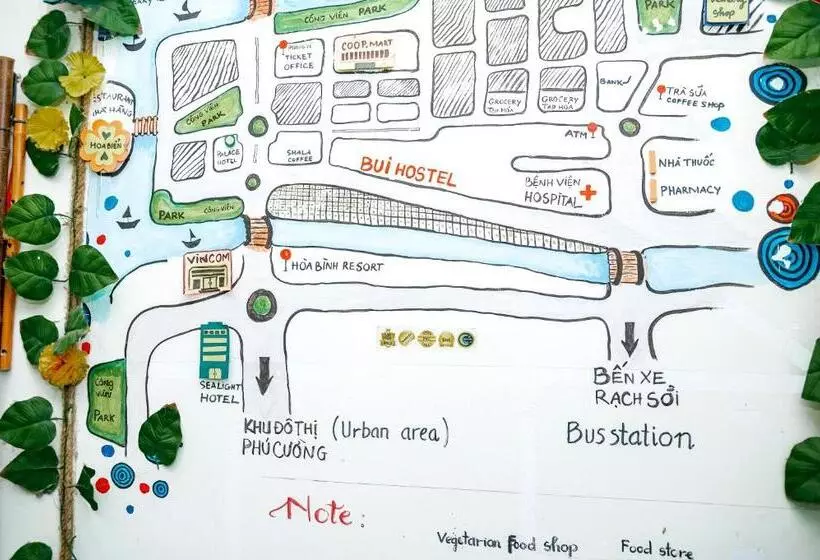 CÔNG VIÊN PARK
PARK
shop
TICKET
OFFICE
COOP MART
BANK
TRÀ SỮA
COFFEE SHOP
GROCERY
TẠP HÓA
GROCERY
TẠP HÓA
NHÀ HÀNG
HOA BIỂN
CÔNG VIÊN
PARK
PALACE
HOTEL
SHALA
COFFEE
ATM
BUI HOSTEL
BỆNH VIỆN
HOSPITAL
NHÀ THUỐC
PHARMACY
PARK CÔNG VIÊN
VINCOM
HÒA BÌNH RESORT
SEALIGHT
HOTEL
CÔNG
VIÊN
PARK
BẾN XE
RẠCH SỎI
Bus station
KHU ĐÔ THỊ (Urban area)
PHÚ CƯỜNG
Note:
Vegetarian Food shop
Food store